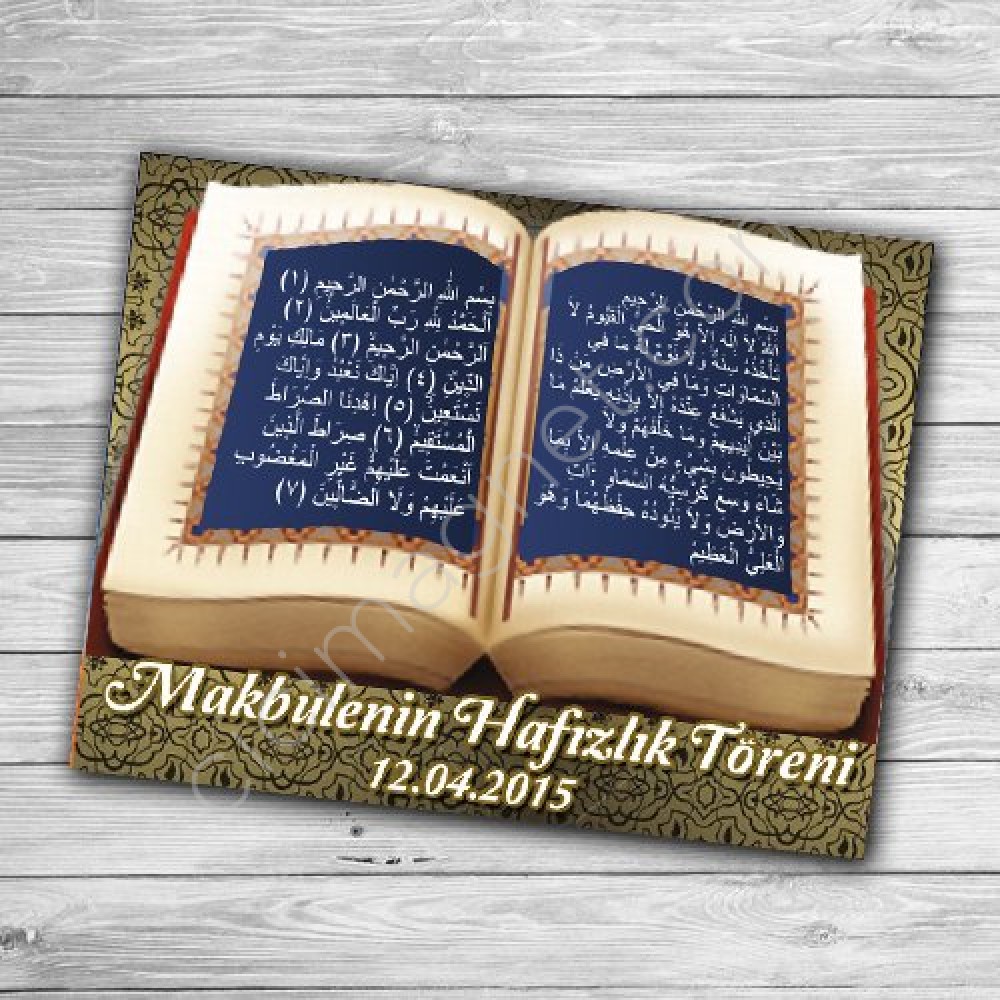 بِسْمِ اللهِ الرَّحْمٰنِ الرَّحِيمِ (١)
اَلْحَمْدُ لِلّٰهِ رَبِّ الْعَالَمِينَ (٢)
اَلرَّحْمٰنِ الرَّحِيمِ (٣) مَالِكِ يَوْمِ
الدِّينِ (٤) اِيَّاكَ نَعْبُدُ وَاِيَّاكَ
نَسْتَعِينُ (٥) اِهْدِنَا الصِّرَاطَ
الْمُسْتَقِيمَ (٦) صِرَاطَ الَّذِينَ
اَنْعَمْتَ عَلَيْهِمْ غَيْرِ الْمَغْضُوبِ
عَلَيْهِمْ وَلَا الضَّالِّينَ (٧)
بِسْمِ اللهِ الرَّحْمٰنِ الرَّحِيمِ
اَللهُ لاَ اِلٰهَ اِلاَّ هُوَ الْحَيُّ الْقَيُّومُ لاَ
تَأْخُذُهُ سِنَةٌ وَلاَ نَوْمٌ لَهُ مَا فِي
السَّمَاوَاتِ وَمَا فِي الْاَرْضِ مَنْ ذَا
الَّذِي يَشْفَعُ عِنْدَهُ اِلاَّ بِاِذْنِهِ يَعْلَمُ مَا
بَيْنَ اَيْدِيهِمْ وَمَا خَلْفَهُمْ وَلاَ
يُحِيطُونَ بِشَيْءٍ مِنْ عِلْمِهِ اِلاَّ بِمَا
شَاءَ وَسِعَ كُرْسِيُّهُ السَّمَاوَاتِ
وَالْاَرْضَ وَلاَ يَئُودُهُ حِفْظُهُمَا وَهُوَ
الْعَلِيُّ الْعَظِيمُ
Makbulenin Hafızlık Töreni
12.04.2015